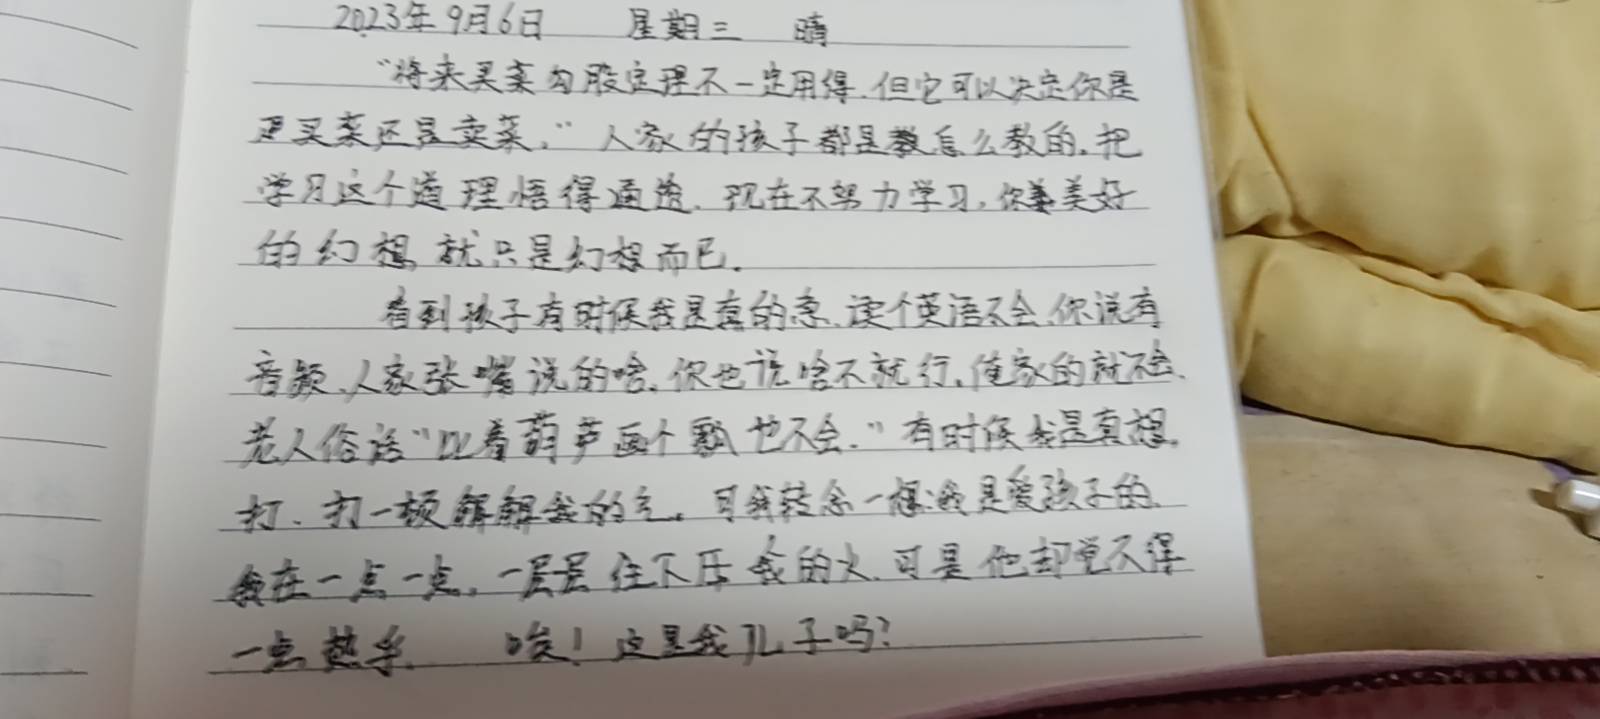 2023年9月6日 星期三 晴
“将来买菜勾股定理不一定用得,但它可以决定你是
是买菜还是卖菜,”人家的孩子都是教怎么教的,把
学习这个道理悟得通透,现在不努力学习,你美好
的幻想就只是幻想而已。
看到孩子有时候我是真的急,读个英语不会,你说有
音频,人家张嘴说的啥,你也说啥不就行,俺家的就不会,
老人俗话“比着葫芦画个瓢也不会.”有时候我是真想,
打、打一顿解解我的气。可我转念一想:我是爱孩子的,
我在一点一点,一层层往下压我的火,可是他却觉不得
一点热乎、 唉!这是我儿子吗?